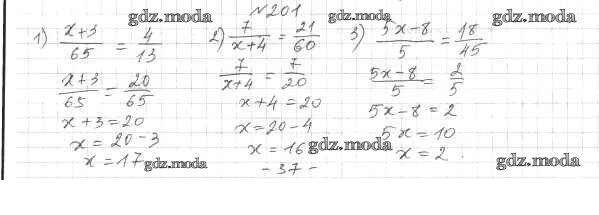 №201
1) (x+3)/65 = 4/13
(x+3)/65 = 20/65
x+3=20
x = 20-3
x=17
2) 7/(x+4) = 21/60
7/(x+4) = 7/20
x+4=20
x=20-4
x=16
3) (5x-8)/5 = 18/45
(5x-8)/5 = 2/5
5x-8=2
5x=10
x=2.
-37-
gdz.moda
gdz.moda
gdz.moda
gdz.moda
gdz.moda
gdz.moda